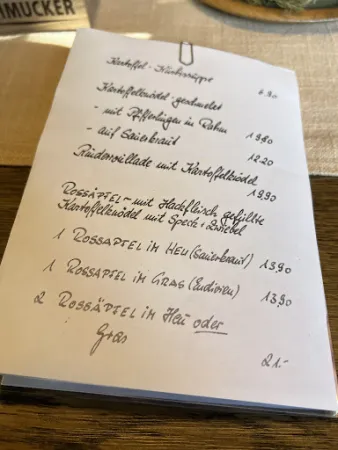 HMUCKER
Kartoffel-Kürbissuppe 6.90
Kartoffelknödel-geschmelzt
- mit Pfifferlingen in Rahm 19.80
- auf Sauerkraut 12.20
Rinderroullade mit Kartoffelknödel 19.90
ROSSÄPFEL - mit Hackfleisch gefüllte
Kartoffelknödel mit Speck + Zwiebel
1 ROSSAPFEL IM HEU (Sauerkraut) 13.90
1 ROSSAPFEL IM GRAS (Endivien) 13.90
2 ROSSÄPFEL IM HEU oder
Gras
21.-